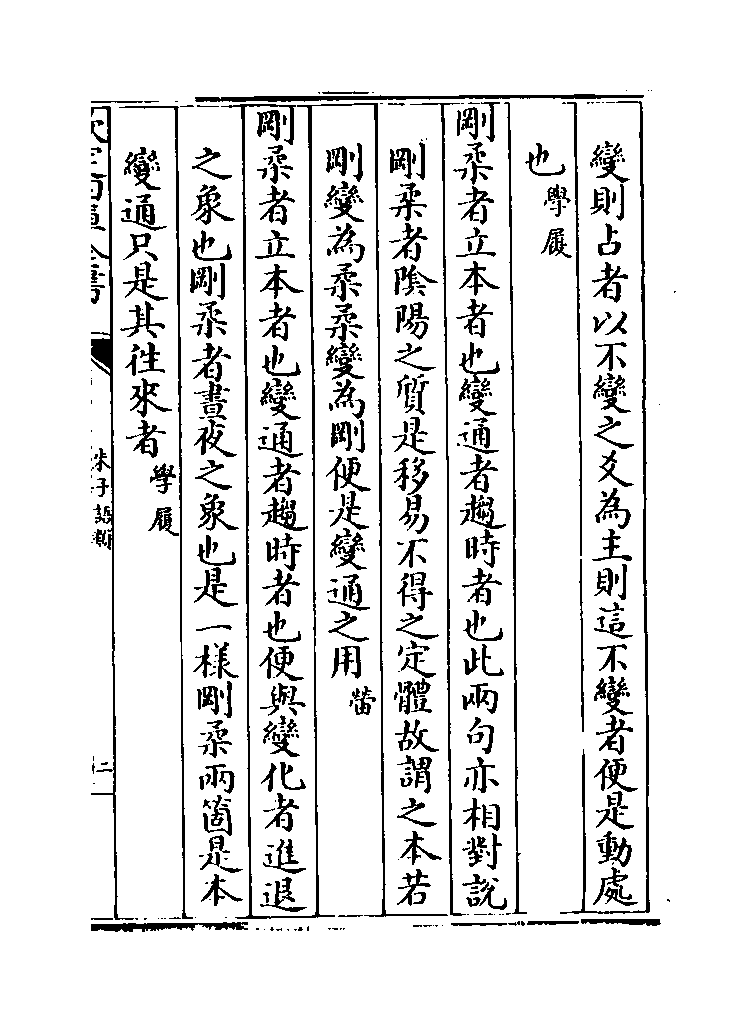 變則占者以不變之爻為主則這不變者便是動處
也學履
剛柔者立本者也變通者趨時者也此兩句亦相對說
剛柔者陰陽之質是移易不得之定體故謂之本若
剛變為柔柔變為剛便是變通之用㽦
剛柔者立本者也變通者趨時者也便與變化者進退
之象也剛柔者晝夜之象也是一樣剛柔兩箇是本
變通只是其往來者學履
欽定四庫全書
朱子語類
二